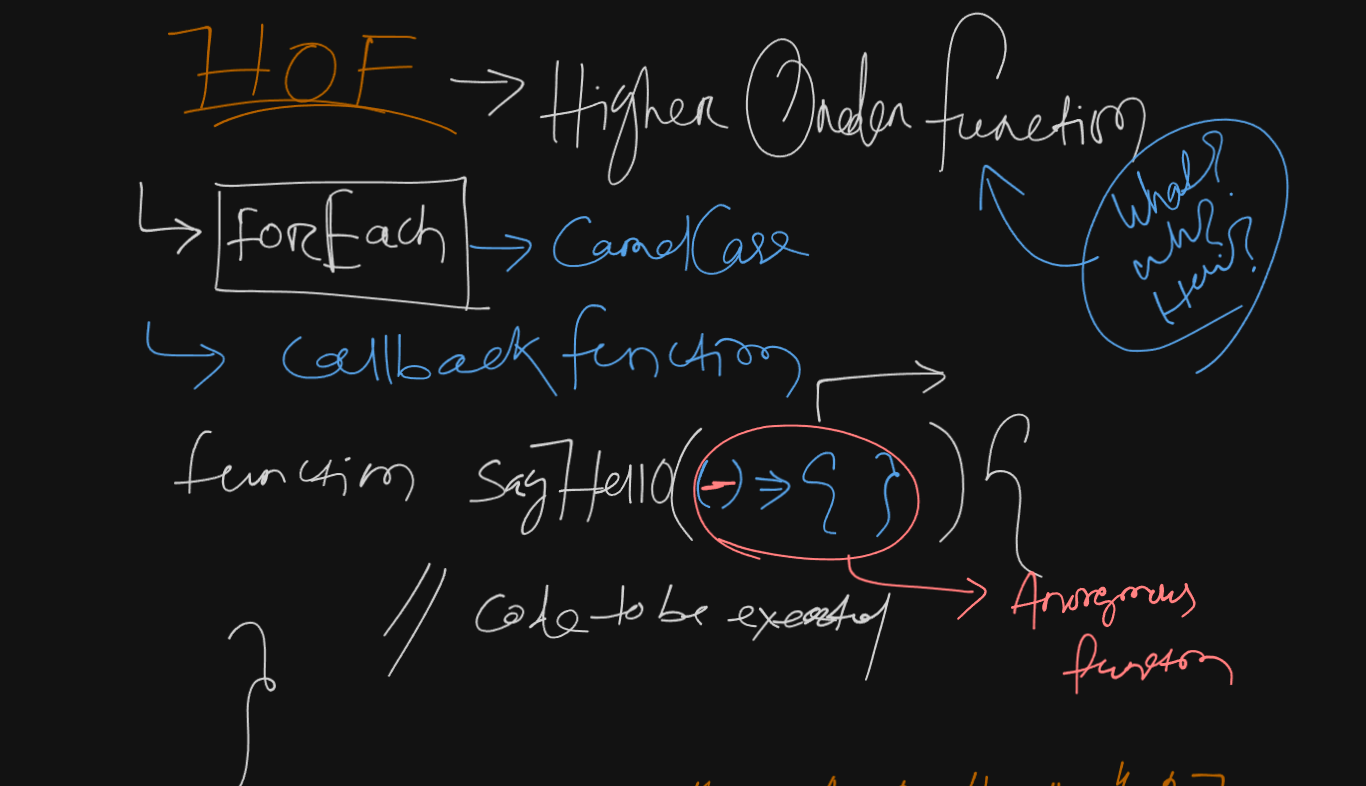 HOF → Higher Order function
↳ forEach → CamelCase
What?
why?
How?
↳ Callback function
function sayHello((-) => { }) {
// Code to be executed
Anonymous
function
}